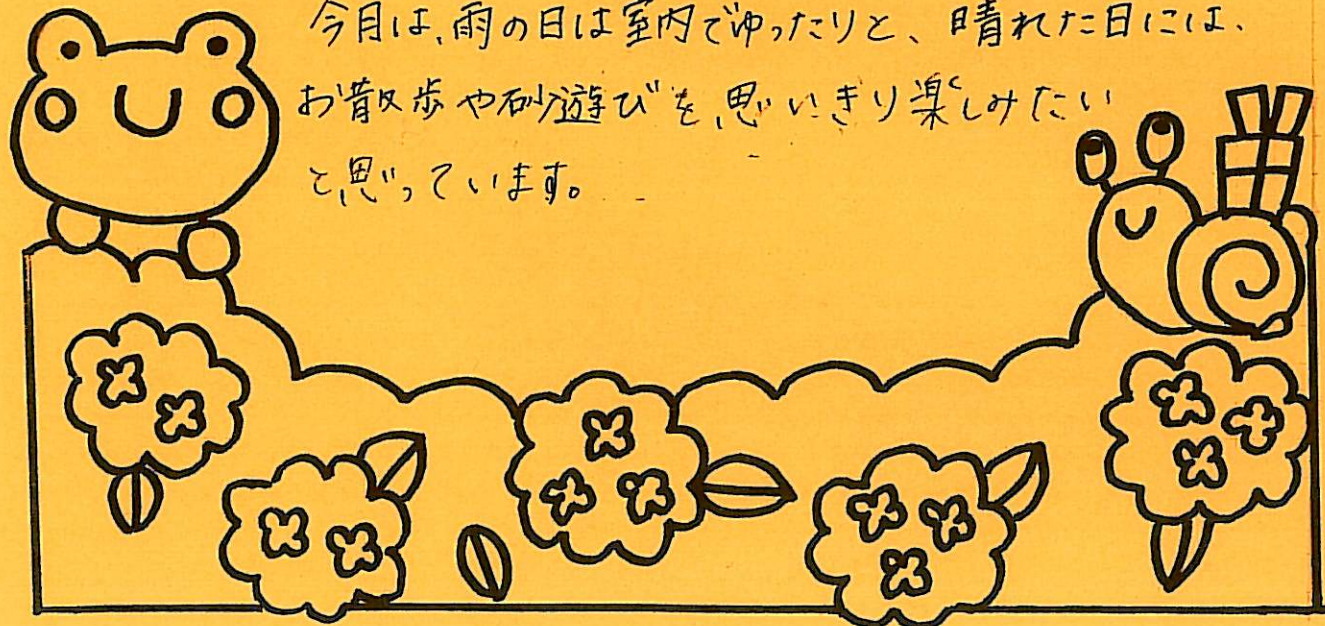 今月は、雨の日は室内でゆったりと、晴れた日には、
お散歩や砂遊びを思いきり楽しみたい
と思っています。